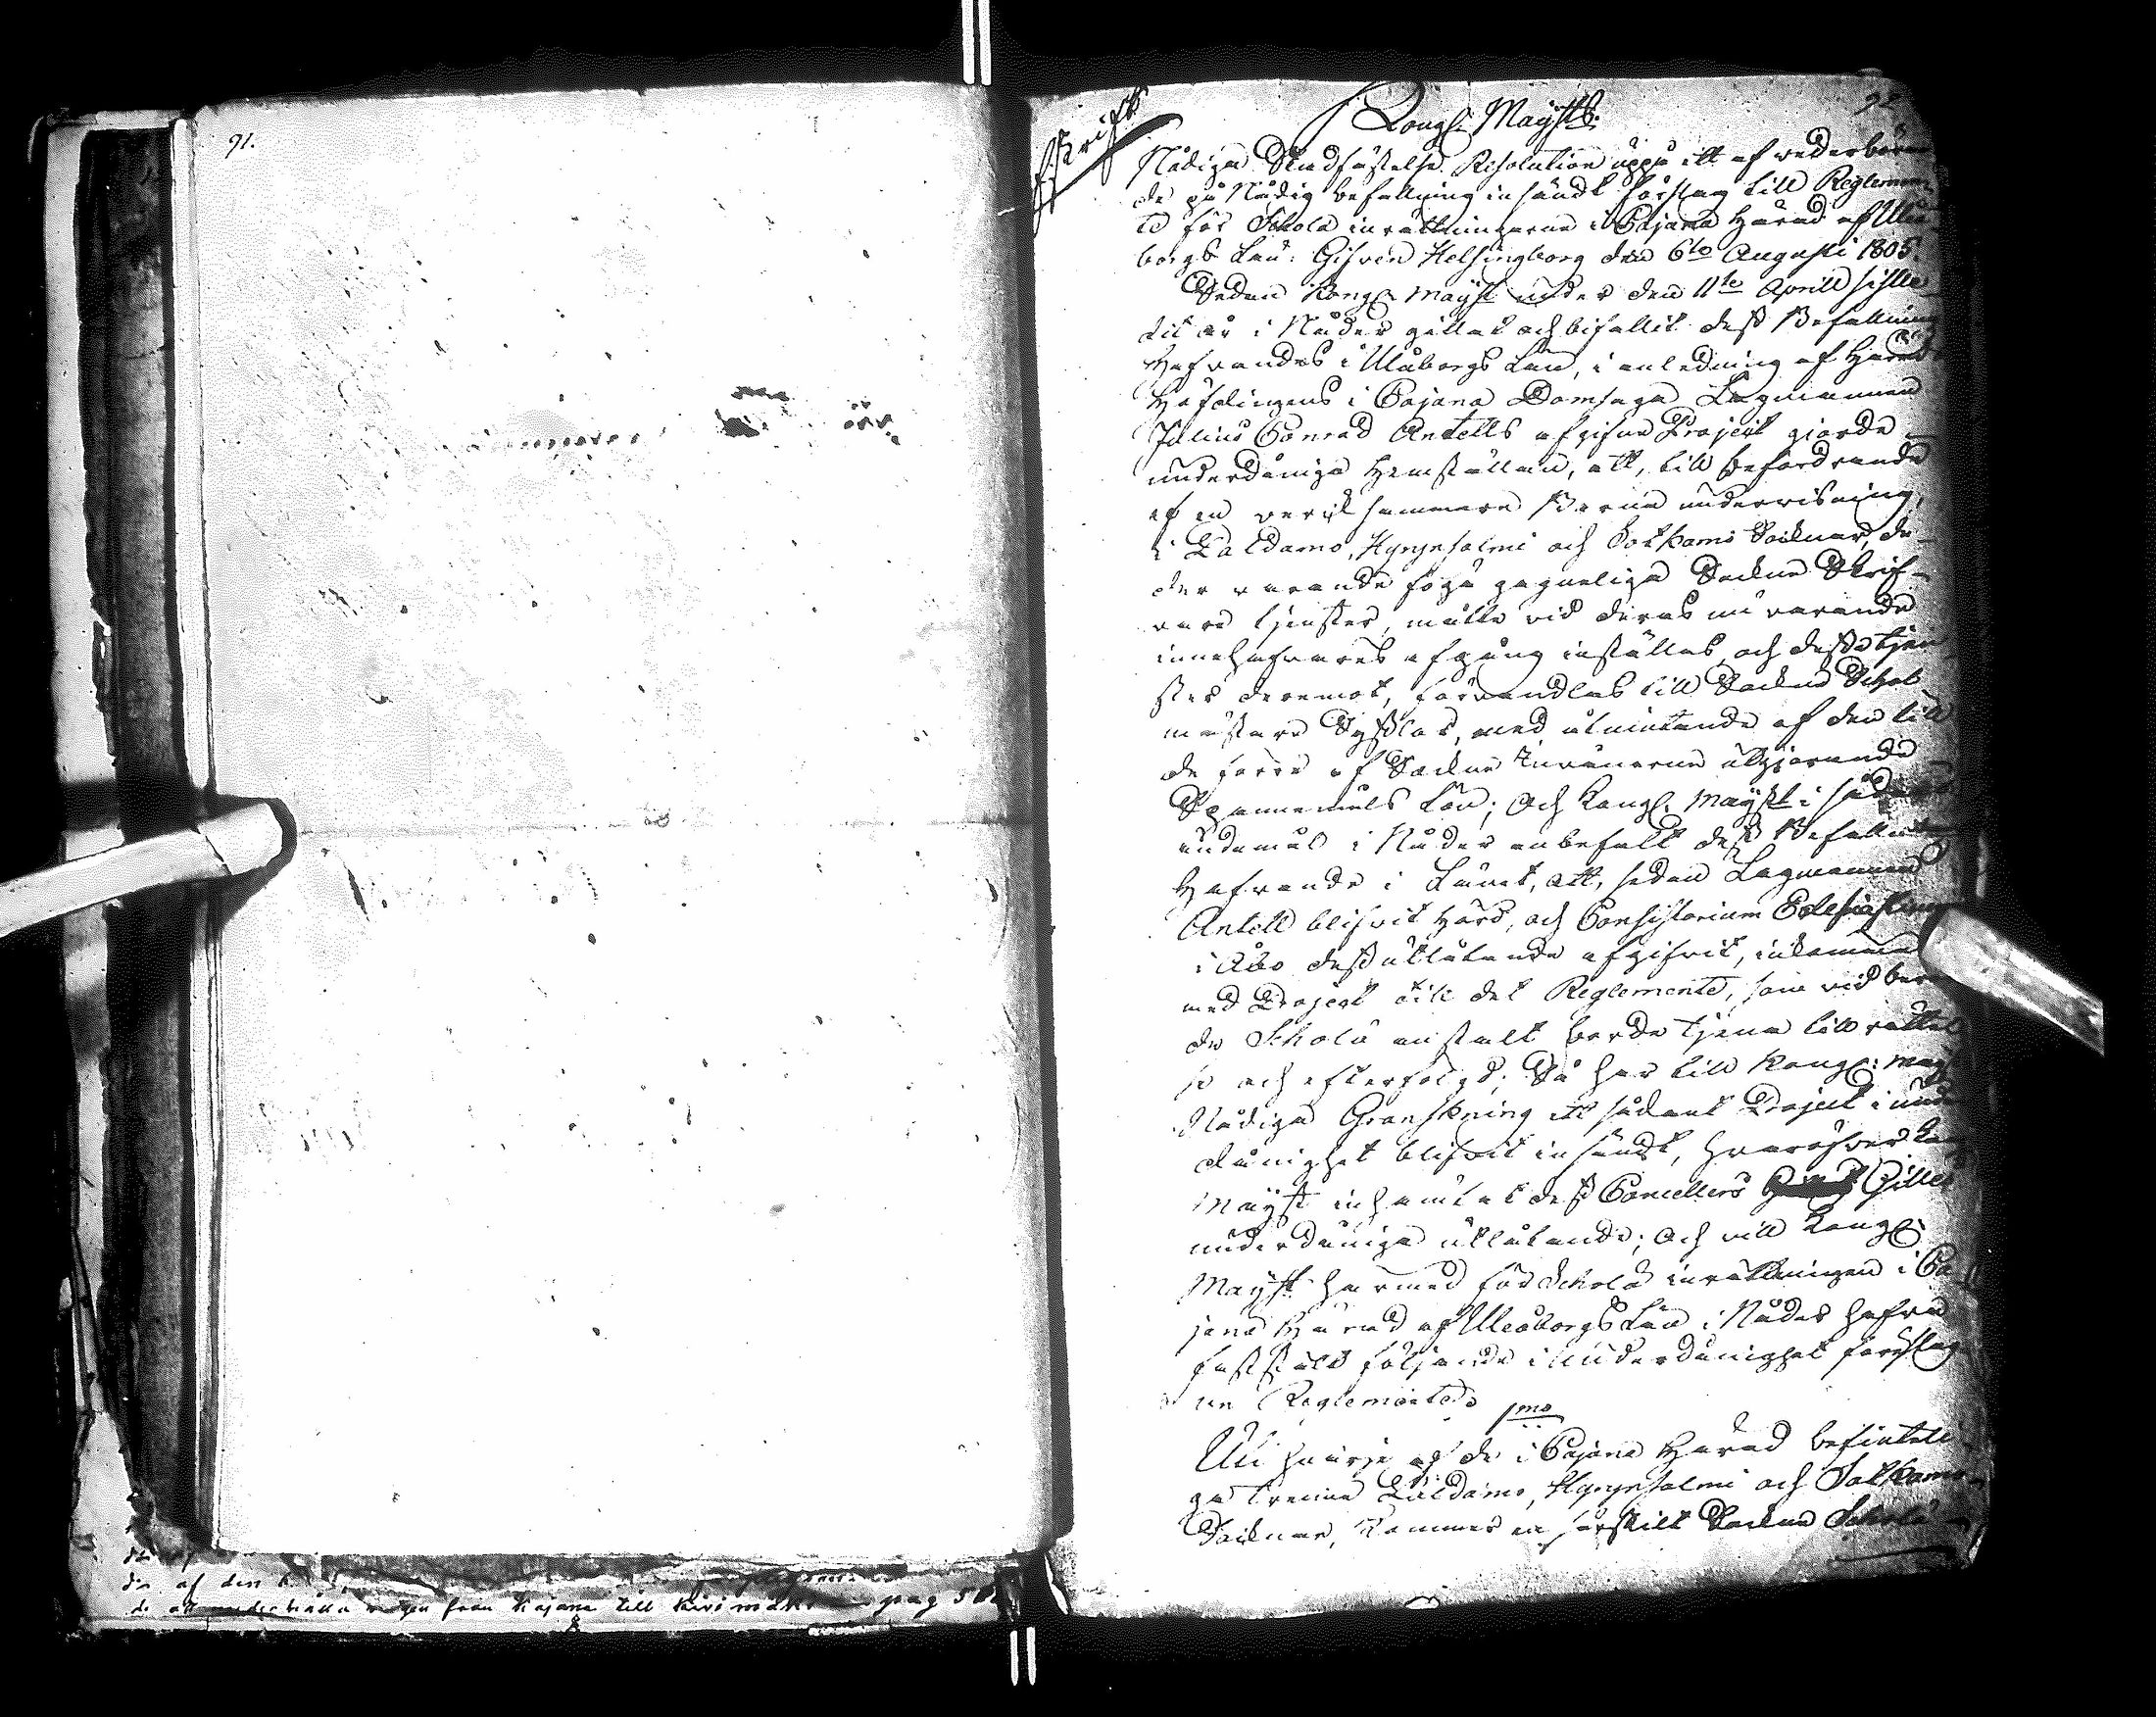 91.
92
Afskrift
Kongl. Maÿsts.
Nådiga Stadfästelse Resolution uppå ett af wederböran
de på Nådig befallning insändt förslag till Reglemen
te för Schola inrättningarne i Cajana Härad af Uleå
borgs Län: Gifven Helsingborg den 6te Augusti 1805.
Sedan Kongl. Maÿst under den 11te Aprill sistle
dit år i Nåder gillat och bifallit dess Befallnings
Hafvandes i Uleåborgs Län, i anledning af Härads
Höfdingens i Cajana Domsaga Lagmannen
Julius Conrad Antells afgifne Project gjorde
underdåniga hemställan, att, till befordrande
af en verksammare Barna undervisning,
i Paldamo, Hyrynsalmi och Sotkamo Socknar, de
der varande föga gagneliga Sockne Skrif-
vare tjenster, måtte vid deras nu varande
innehafvares afgång inställas, och desse tjen
ster deremot, förvandlas till Sockne Schol
mästare Sysslor, med åtnjutande af den till
de förre af Sockne Invånarne utgjorande
Spannemåls Lön; och Kongl. Maÿst i sådant
ändamål i Nåder anbefalt dess Befallnings
Hafvande i Länet, att, sedan Lagmannen
Antell blifvit hörd, och Consistorium Eclesiasticum
i Åbo dess utlåtande afgifvit, inkomma
med Project till det Reglemente, som vid ber
de Schola anstalt borde tjena till rättel
se och efterföljd; Så har till Kongl: Maÿ
Nådiga Granskning ett sådant Project i under
dånighet blifvit insändt, hvaröfver Kong
Maÿst inhämtat dess Cancellers Gilles
underdåniga utlåtande; och vill Kongl:
Maÿst härmed för Schola inrättningen i Ca
jana Härad af Uleåborgs Län i Nåder hafva
fastställt följande i Underdånighet föreslag
ne Reglemente.
1mo
Uti hvarje af de i Cajana Härad befinteli
ga trenne Paldamo, Hyrynsalmi och Sotkamo
Socknar, kommer en särskilt Sockne Schola
af den
underhålla vägen från Kajana till pag 5